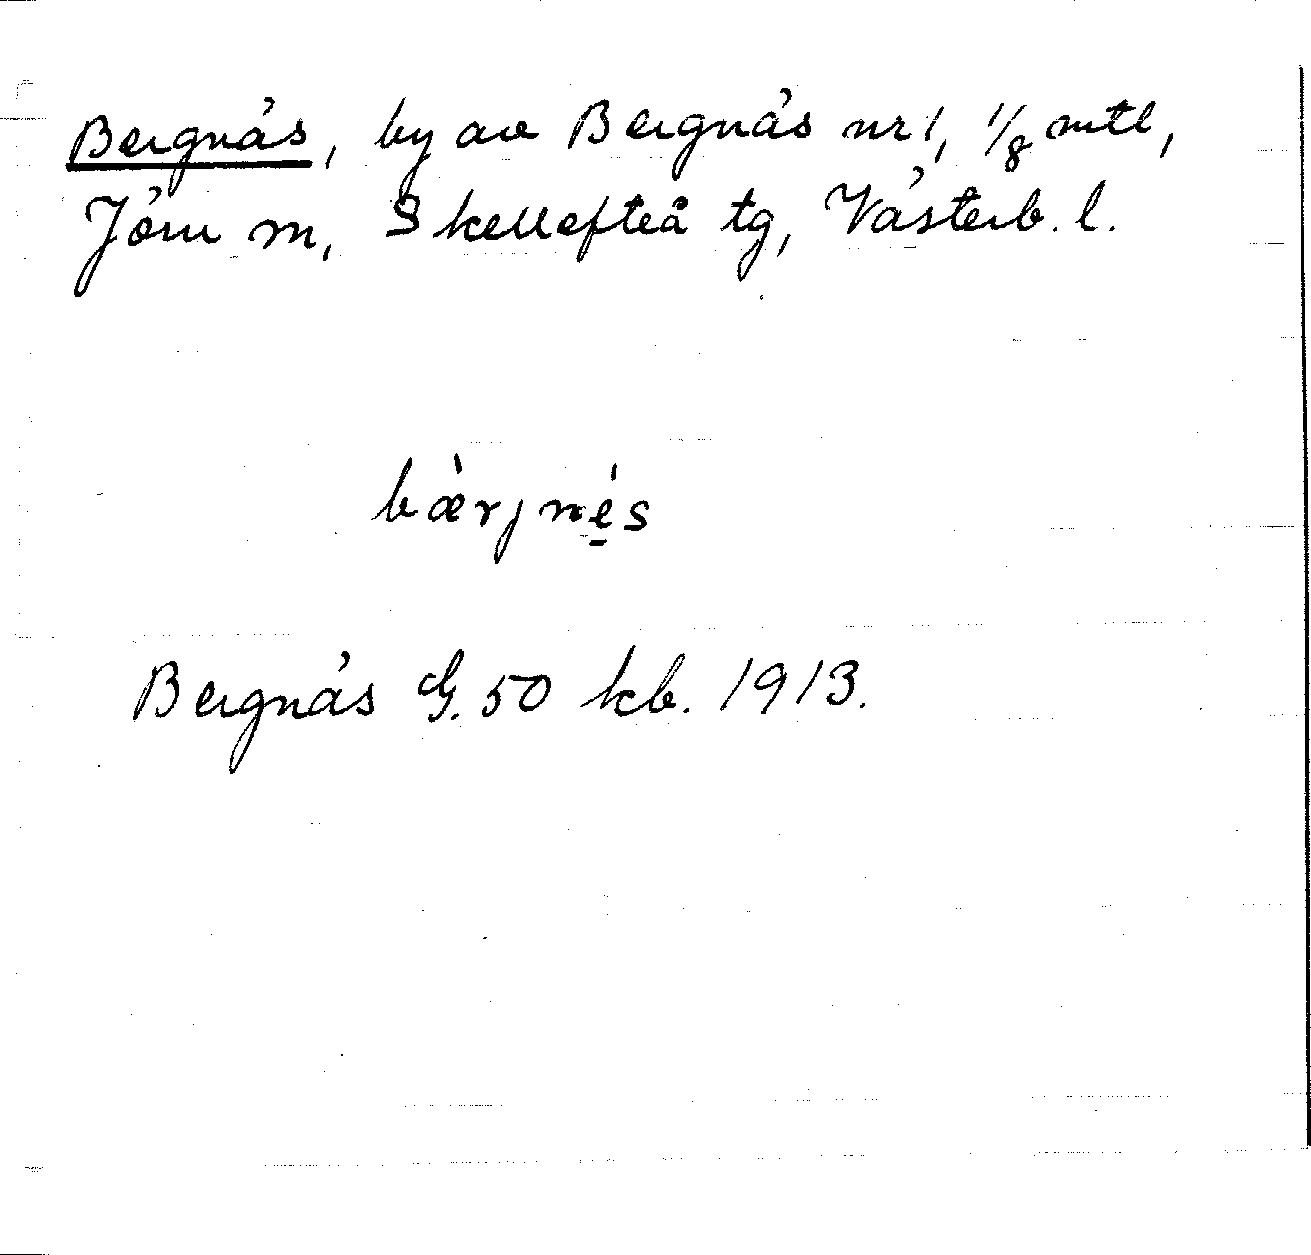 Bergnäs, by av Bergnäs nr 1, 1/8 mtl,
Jörn sn, Skellefteå tg, Västerb. l.
bæ̀rjnés
Bergnäs G. 50 kb. 1913.